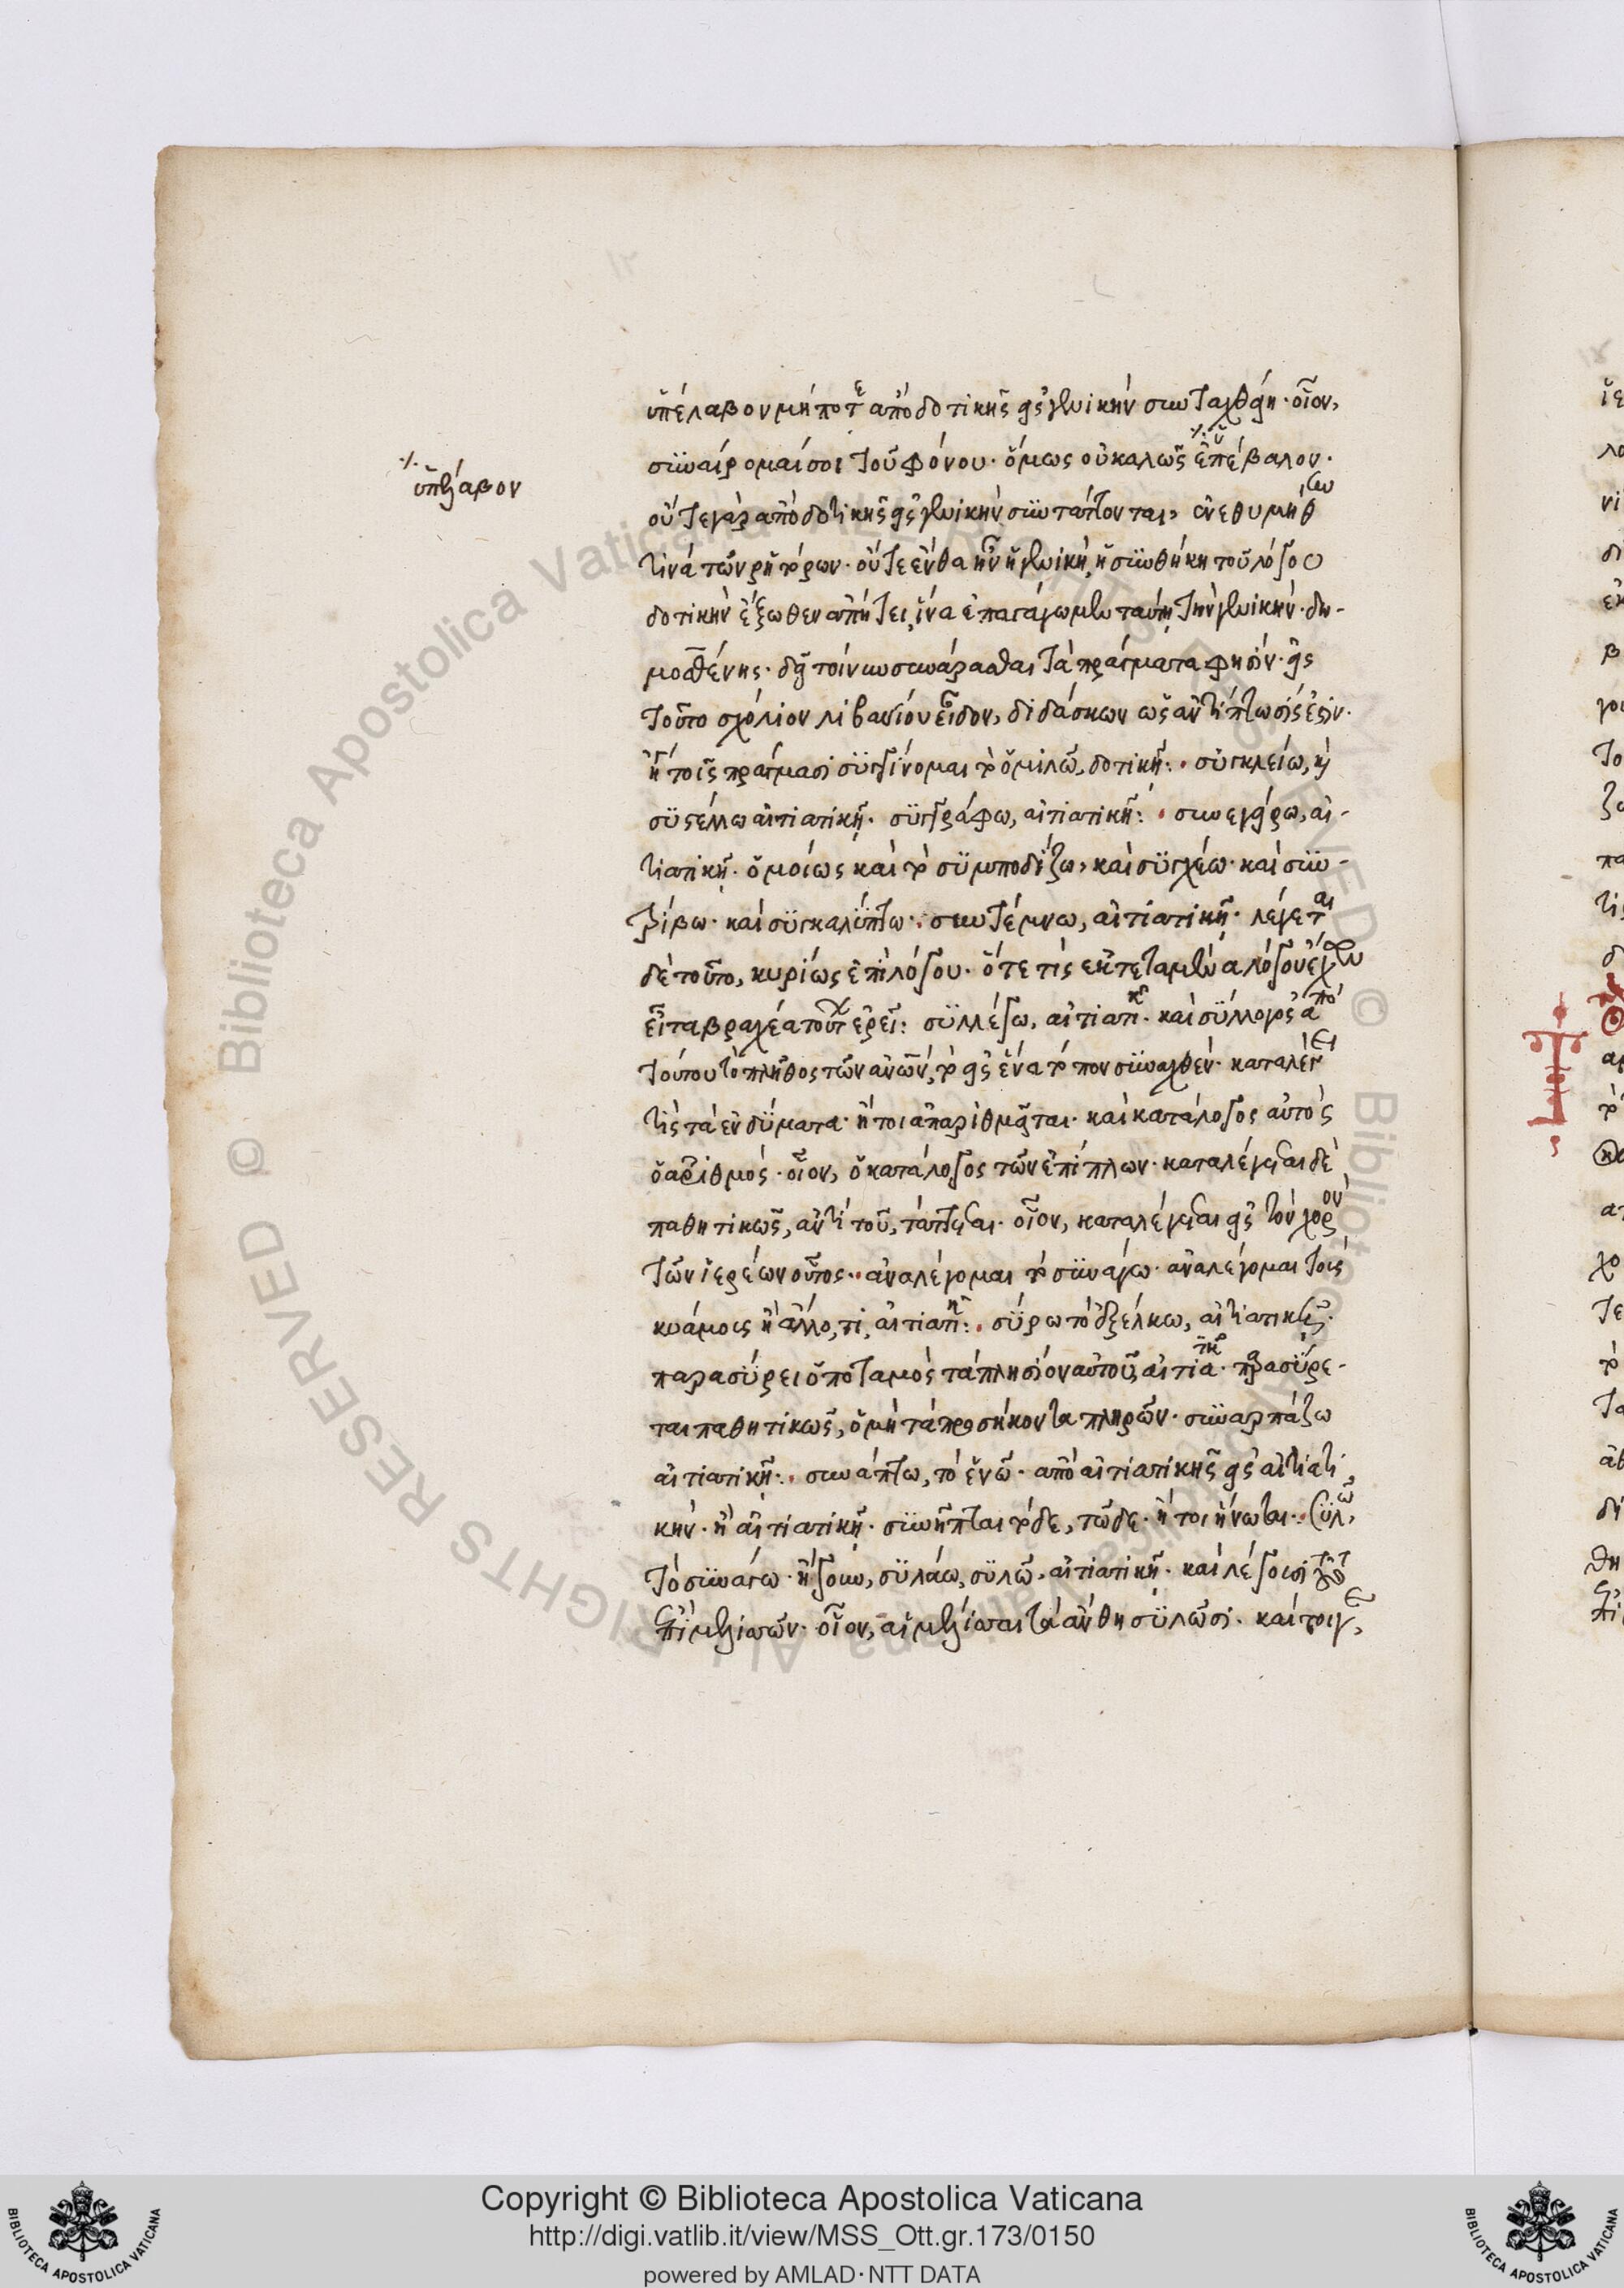 ὑπέλαβον μήποτε ἀπὸ δοτικῆς εἰς γενικὴν συνταχθείη· οἷον,
συναίρομαί σοι τοῦ φόνου· ὅμως οὐ καλῶς ἐπέβαλον·
ὑπέλαβον
οὔτε γὰρ ἀπὸ δοτικῆς εἰς γενικὴν συντάττονται, ἐνεθυμήθην
τινὰ τῶν ῥητόρων· οὔτε ἔνθα ἦν ἡ γενικὴ, ἡ συνθήκη τοῦ λόγου
δοτικὴν ἔξωθεν ἀπῄτει, ἵνα ἐπαγάγωμεν ταύτῃ τὴν γενικήν· δη-
μοσθένης· δεῖ τοίνυν συνάρασθαι τὰ πράγματα φησίν· εἰς
τοῦτο σχόλιον λιβανίου εἶδον, διδάσκων ὡς ἀντίπτωσίς ἐστιν·
ἢ τοῖς πράγμασι συγγίνομαι τὸ ὁμιλῶ, δοτικῇ: συγκλείω, καὶ
συστέλλω αἰτιατικῇ· συγγράφω, αἰτιατικῇ: συνεγείρω, αἰ-
τιατικῇ· ὁμοίως καὶ τὸ συμποδίζω, καὶ συγχέω· καὶ συν-
τρίβω· καὶ συγκαλύπτω: συντέμνω, αἰτιατικῇ· λέγεται
δὲ τοῦτο, κυρίως ἐπὶ λόγου· ὅτε τις ἐκτεταμένα λόγου ἔχων
εἶτα βραχέα τούτων ἐρεῖ: συλλέγω, αἰτιατικῇ· καὶ σύλλογος ἀπὸ
τούτου τὸ πλῆθος τῶν ἀνων, τὸ εἰς ἕνα τόπον συναχθέν· καταλέγει
τὶς τὰ ἐνδύματα· ἤτοι ἀπαριθμεῖται· καὶ κατάλογος αὐτὸς
ὁ ἀριθμός· οἷον, ὁ κατάλογος τῶν ἐπίπλων· καταλέγεται δὲ
παθητικῶς, ἀντὶ τοῦ, τάττεται· οἷον, καταλέγεται εἰς τὸν χορὸν
τῶν ἱερέων οὗτος: ἀναλέγομαι τὸ συνάγω· ἀναλέγομαι τοὺς
κυάμους ἢ ἄλλό, τι, αἰτιατικῇ: σύρω τὸ ἐξέλκω, αἰτιατικῇ·
παρασύρει ὁ ποταμὸς τὰ πλησίον αὐτοῦ, αἰτιατικῇ· παρασύρε-
ται παθητικῶς, ὁ μὴ τὰ προσήκοντα πληρῶν· συναρπάζω
αἰτιατικῇ: συνάπτω, τὸ ἑνῶ· ἀπὸ αἰτιατικῆς εἰς αἰτιατι
κήν· ἢ αἰτιατικῇ· συνῆπται τόδε, τῷδε· ἤτοι ἥνωται: συλῶ,
τὸ συνάγω· ἤγουν, συλάω, συλῶ, αἰτιατικῇ· καὶ λέγουσι τοῦτο
ἐπὶ μελισσῶν· οἷον, αἱ μέλισσαι τὰ ἄνθη συλῶσι·
Copyright © Biblioteca Apostolica Vaticana
http://digi.vatlib.it/view/MSS_Ott.gr.173/0150
powered by AMLAD·NTT DATA